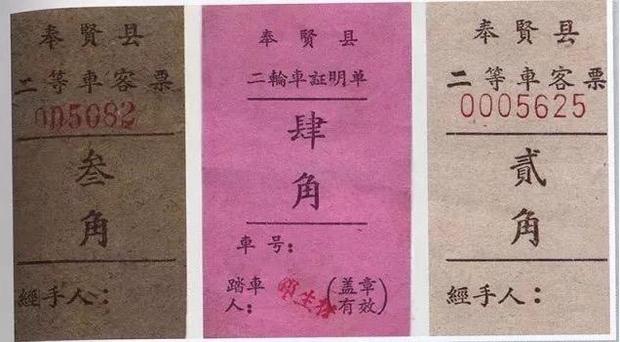 奉賢县
二等車客票
005082
叁角
經手人：
奉賢县
二輪車証明单
肆角
車号：
踏車人：
（盖章有效）
奉賢县
二等車客票
0005625
貳角
經手人：